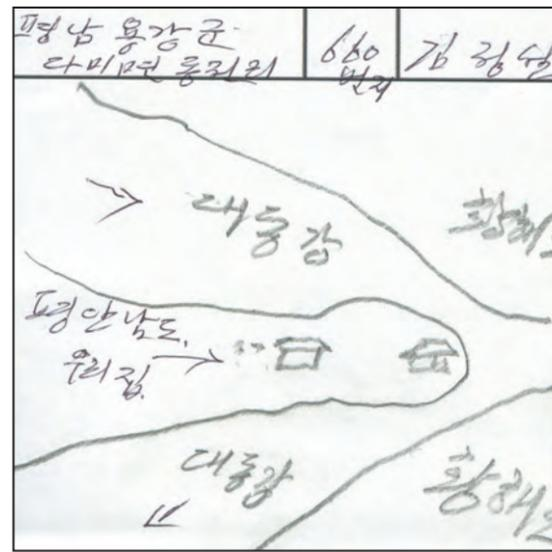 평남 용강군
다미면 동전리
660
번지
김링실
대동강
황해도
평안남도.
우리집.
대동강
황해도